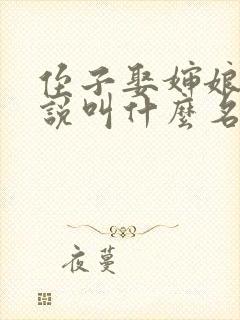 侄子娶婶娘
說叫什麼名
夜蔓